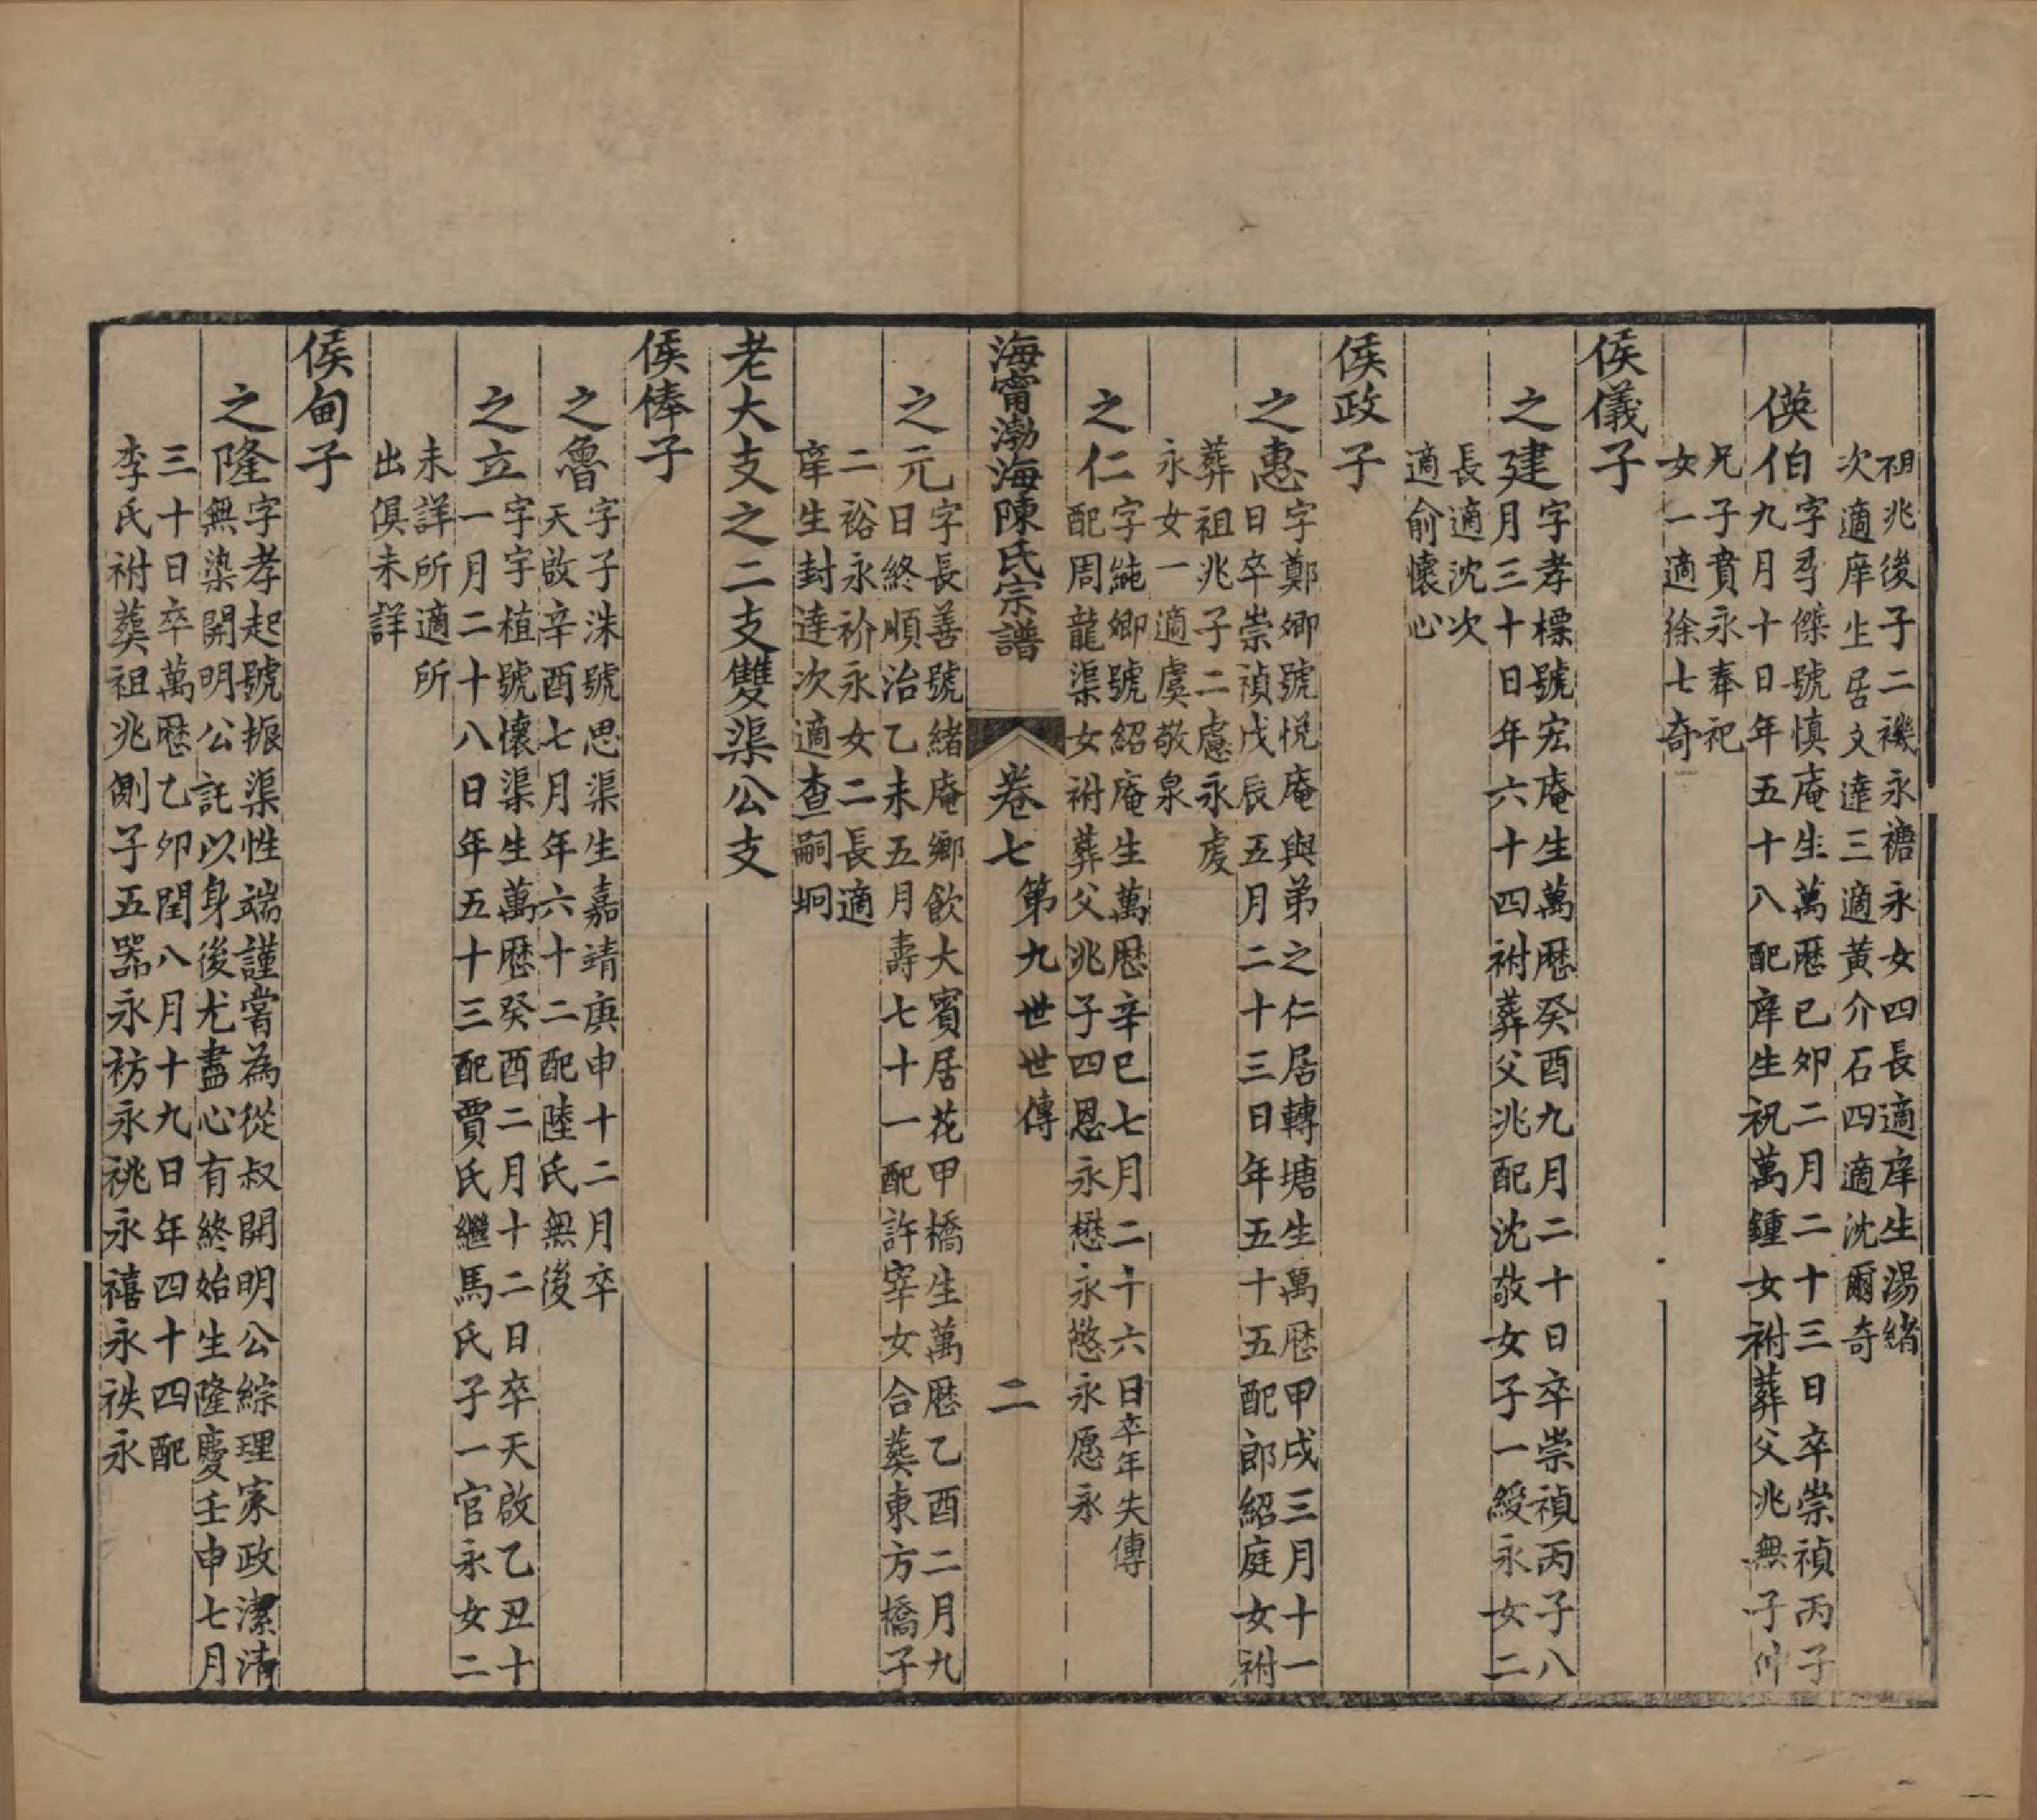 祖兆後子二禨永禟永女四長適庠生湯緒
次適庠生居文達三適黃介石四適沈爾奇
偀伯
字粤傑號慎庵生萬厯己卯二月二十三日卒崇禎丙子
九月十日年五十八配庠生祝萬鍾女祔葬父兆無子仲
兄子賁永奉祀
女一適徐七奇
侯儀子
之建
字孝標號宏庵生萬厯癸酉九月二十日卒崇禎丙子八
月三十日年六十四祔葬父兆配沈敬女子一綬永女二
長適沈次
適俞懷心
侯政子
之惠
字鄭卿號悦庵與弟之仁居轉塘生萬厯甲戌三月十一
日卒崇禎戊辰五月二十三日年五十五配郎紹庭女祔
葬祖兆子二慮永處
永女一適虞敬泉
之仁
字純卿號紹庵生萬厯辛巳七月二十六日卒年失傳
配周龍渠女祔葬父兆子四恩永懋永慫永愿永
海甯渤海陳氏宗譜
卷七
第九世世傳
二
之元
字長善號緒庵鄉飲大賓居花甲橋生萬厯乙酉二月九
日終順治乙未五月壽七十一配許宰女合葬東方橋子
二裕永祄永女二長適
庠生封達次適查嗣坰
老大支之二支雙渠公支
侯俸子
之魯
字子洙號思渠生嘉靖庚申十二月卒
天啟辛酉七月年六十二配陸氏無後
之立
字宇植號懷渠生萬厯癸酉二月十二日卒天啟乙丑十
一月二十八日年五十三配賈氏繼馬氏子一官永女二
未詳所適所
出俱未詳
侯甸子
之隆
字孝起號振渠性端謹嘗為從叔開明公綜理家政潔清
無染開明公託以身後尤盡心有終始生隆慶壬申七月
三十日卒萬厯乙卯閏八月十九日年四十四配
李氏祔葬祖兆側子五器永祊永祧永禧永袟永